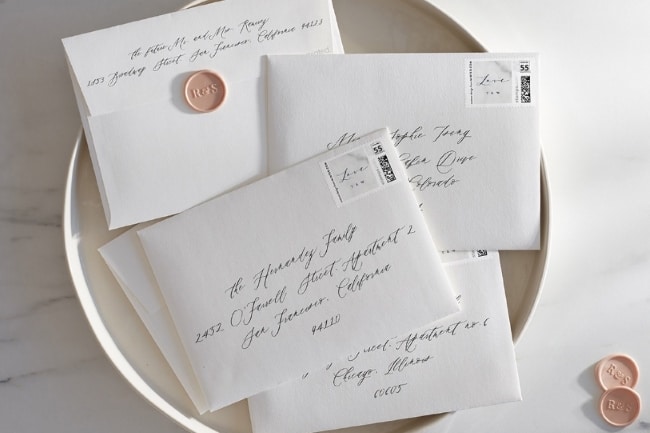 the future Mr. and Mrs. Renney
2853 Broadway Street, San Francisco, California 94123
R&S
Love
55
Sophie
Drive
Colorado
Love
55
the Hernandez Family
2452 O'Farrell Street, Apartment 2
San Francisco, California
94110
Street, Apartment no. 6
Chicago, Illinois
60605
R&S
R&S